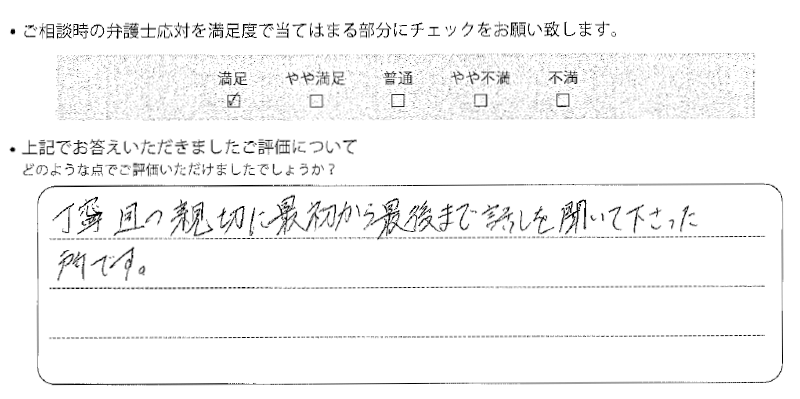 • ご相談時の弁護士応対を満足度で当てはまる部分にチェックをお願い致します。
満足 やや満足 普通 やや不満 不満
☑ ☐ ☐ ☐ ☐
• 上記でお答えいただきましたご評価について
どのような点でご評価いただけましたでしょうか？
丁寧且つ親切に最初から最後まで話しを聞いて下さった
所です。